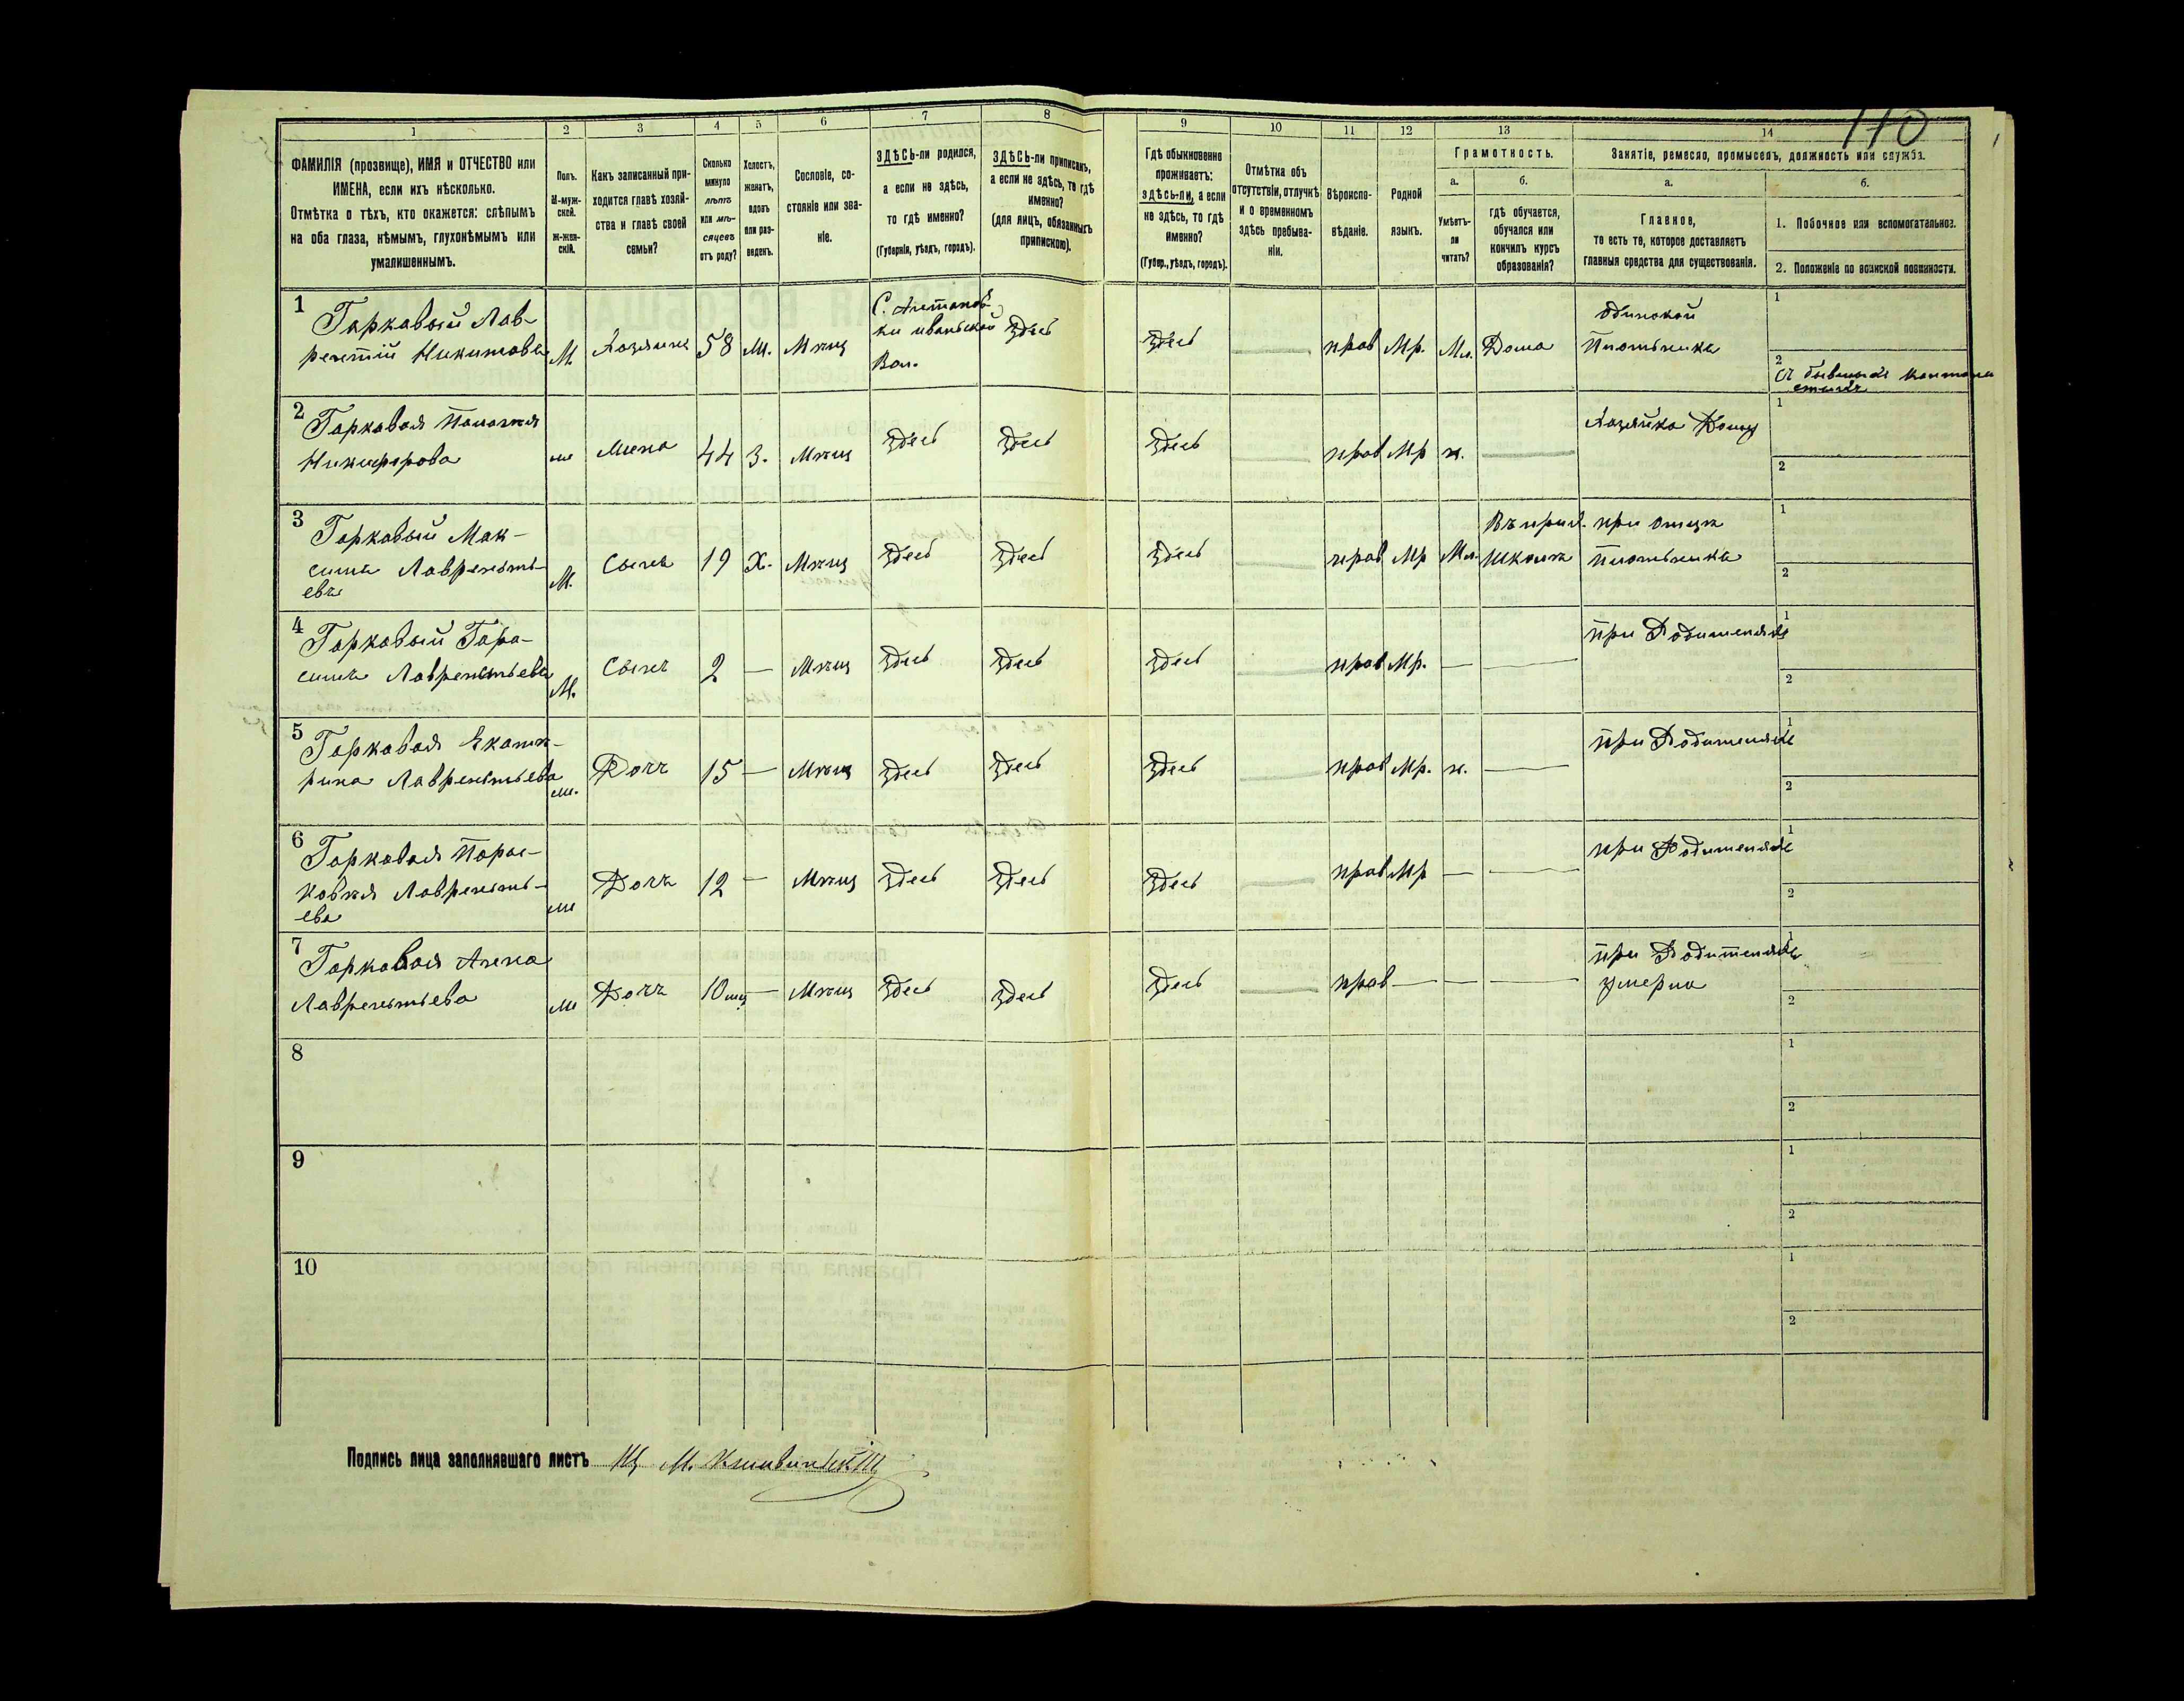 110
1
2
3
4
5
6
7
8
9
10
11
12
13
14
ФАМИЛІЯ (прозвище), ИМЯ и ОТЧЕСТВО или
ИМЕНА, если ихъ нѣсколько.
Отмѣтка о тѣхъ, кто окажется: слѣпымъ
на оба глаза, нѣмымъ, глухонѣмымъ или
умалишеннымъ.
Полъ.
М-муж-
ской.
Ж-жен-
скій.
Какъ записанный при-
ходится главѣ хозяй-
ства и главѣ своей
семьи?
Сколько
минуло
лѣтъ
или мѣ-
сяцевъ
отъ роду?
Холостъ,
женатъ,
вдовъ
или раз-
веденъ.
Сословіе, со-
стояніе или зва-
ніе.
ЗДѢСЬ-ли родился,
а если не здѣсь,
то гдѣ именно?
(Губернія, уѣздъ, городъ).
ЗДѢСЬ-ли приписанъ,
а если не здѣсь, то гдѣ
именно?
(для лицъ, обязанныхъ
припискою).
Гдѣ обыкновенно
проживаетъ:
ЗДѢСЬ-ли, а если
не здѣсь, то гдѣ
именно?
(Губер., уѣздъ, городъ).
Отмѣтка объ
отсутствіи, отлучкѣ
и о временномъ
здѣсь пребыва-
ніи.
Вѣроиспо-
вѣданіе.
Родной
языкъ.
Грамотность.
а.
Умѣетъ-
ли
читать?
б.
гдѣ обучается,
обучался или
кончилъ курсъ
образованія?
Занятіе, ремесло, промыселъ, должность или служба.
а.
Главное,
то есть то, которое доставляетъ
главныя средства для существованія.
б.
1. Побочное или вспомогательное.
2. Положеніе по воинской повинности.
1
Горкавый Лав-
рентій Никитовъ
М
Хозяинъ
58
ж.
Мѣщ
Вол.
здѣсь
здѣсь
прав
Мр.
Дома
Плотникъ
1
2
2
Горкавая
Никифорова
ж
жена
44
з.
Мѣщ
здѣсь
здѣсь
здѣсь
прав
Мр
н.
Хозяйка Дому
1
2
3
Горкавый Мак-
симъ Лавренть-
евъ
М.
Сынъ
19
Х.
Мѣщ
здѣсь
здѣсь
здѣсь
прав
Мр
школѣ
при отцѣ
плотникъ
1
2
4
Горкавый Гера-
симъ Лаврентьевъ
М.
Сынъ
2
—
Мѣщ
здѣсь
здѣсь
здѣсь
прав
Мр.
—
—
при Родителяхъ
1
2
5
Горкавая Екате-
рина Лаврентьева
ж.
Дочь
15
—
Мѣщ
здѣсь
здѣсь
здѣсь
прав
Мр.
н.
—
при Родителяхъ
1
2
6
Горкавая Парас-
ковея Лавренть-
ева
ж
Дочь
12
—
Мѣщ
здѣсь
здѣсь
здѣсь
прав
Мр
—
—
при Родителяхъ
1
2
7
Горкавая Анна
Лаврентьева
ж
Дочь
10 мц
—
Мѣщ
здѣсь
здѣсь
здѣсь
прав
—
—
—
при Родителяхъ
умерла
1
2
8
1
2
9
1
2
10
1
2
Подпись лица заполнявшаго листъ